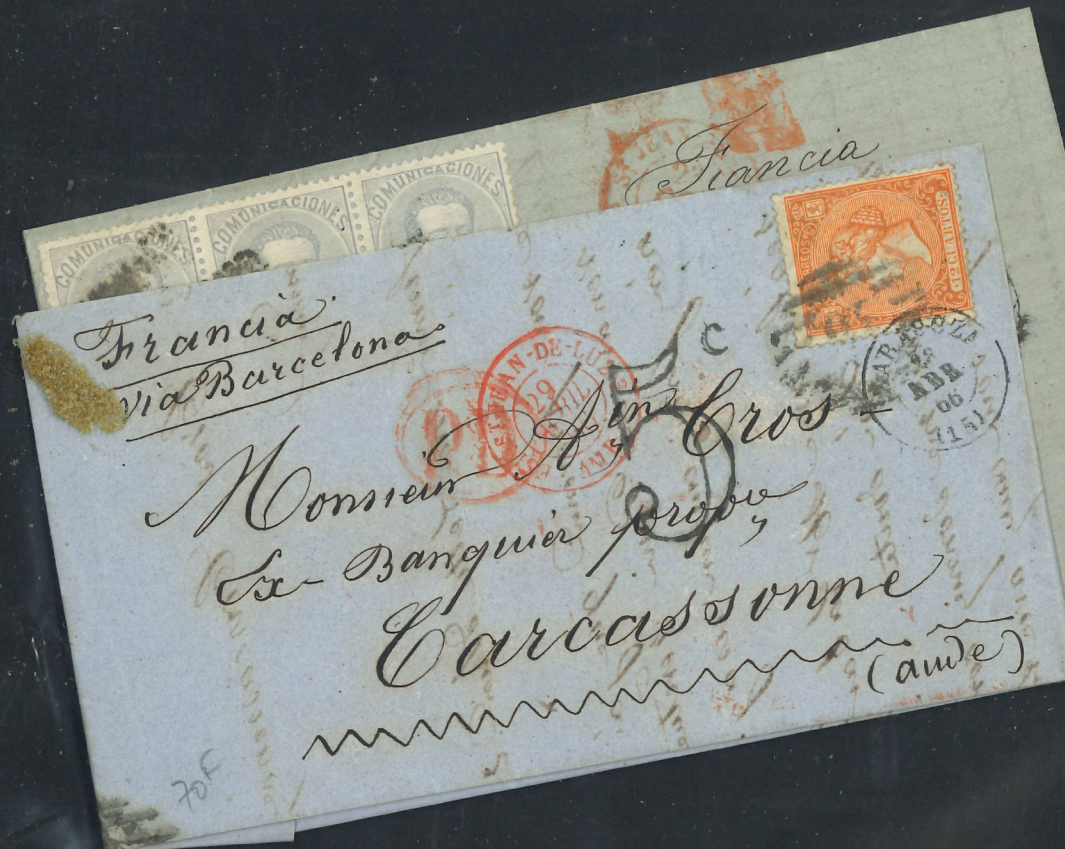 COMUNICACIONES
COMUNICACIONES
COMUNICACIONES
Francia
CORREOS
12 CUARTOS
Francia
via Barcelona
C
ST JEAN-DE-LUZ
29
PD
ZARAGOZA
ABR
66
(15)
Monsieur Ajin Cros
Ex-Banquier propre
Carcassonne
(aude)
70F